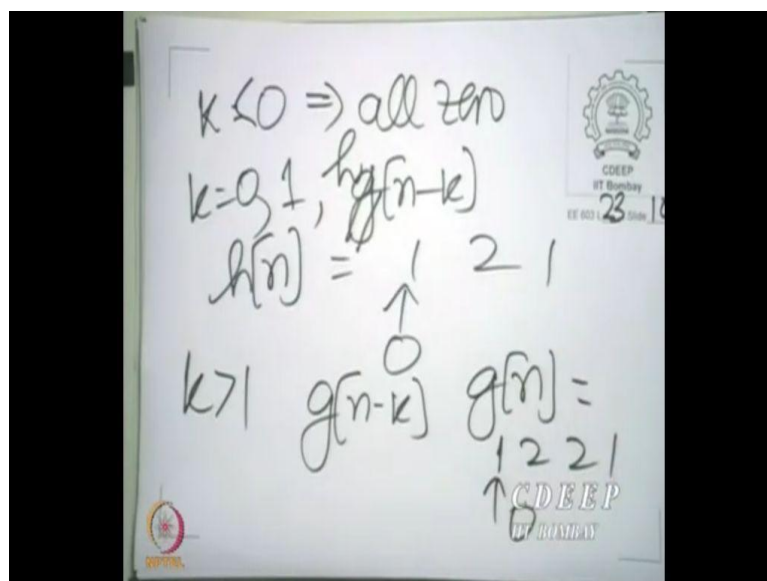 k<0 ⇒ all zero
k=0, 1, h[n-k]
h[n] = 1 2 1
↑
0
k>1 g[n-k] g[n] =
1 2 2 1
↑
0
CDEEP
IIT Bombay
EE 603 L 23 Slide
CDEEP
IIT BOMBAY
NPTEL